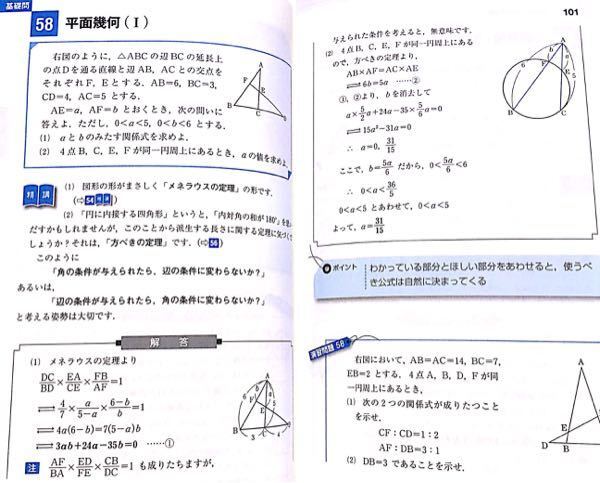 基礎問
58 平面幾何(Ⅰ)
右図のように，△ABCの辺BCの延長上
の点Dを通る直線と辺AB，ACとの交点を
それぞれF，Eとする．AB=6，BC=3，
CD=4，AC=5 とする．
AE=a，AF=b とおくとき，次の問いに
答えよ．ただし，0<a<5，0<b<6 とする．
(1) aとbのみたす関係式を求めよ．
(2) 4点B，C，E，Fが同一円周上にあるとき，aの値を求めよ．
A
F
E
B C
精講
(1) 図形の形がまさしく「メネラウスの定理」の形です．
(⇨54
(2) 「円に内接する四角形」というと，「内対角の和が180°」を
だすかもしれませんが，このことから派生する長さに関する定理に気づ
しょうか？それは，「方べきの定理」です．(⇨56)
このように
「角の条件が与えられたら，辺の条件に変わらないか？」
あるいは，
「辺の条件が与えられたら，角の条件に変わらないか？」
と考える姿勢は大切です．
解答
(1) メネラウスの定理より
DC/BD×EA/CE×FB/AF=1
⟺ 4/7×a/(5-a)×(6-b)/b=1
⟺ 4a(6-b)=7(5-a)b
⟺ 3ab+24a-35b=0 ……①
A
6 b a 5
F
E
B 3 C 4
注 AF/BA×ED/FE×CB/DC=1 も成りたちますが，
101
与えられた条件を考えると，無意味です．
(2) 4点B，C，E，Fが同一円周上にある
ので，方べきの定理より，
AB×AF=AC×AE
⟺ 6b=5a ……②
①，②より，bを消去して
a×5/2a+24a-35×5/6a=0
⟺ 15a²-31a=0
∴ a=0，31/15
ここで，b=5a/6 だから，0<5a/6<6
∴ 0<a<36/5
0<a<5 とあわせて，0<a<5
よって，a=31/15
A
6 F b a
E 5
B C
ポイント
わかっている部分とほしい部分をあわせると，使うべ
き公式は自然に決まってくる
演習問題 58
右図において，AB=AC=14，BC=7，
EB=2とする．4点A，B，D，Fが同
一円周上にあるとき，
(1) 次の2つの関係式が成りたつこと
を示せ．
CF：CD=1：2
AF：DB=3：1
(2) DB=3であることを示せ．
A
E
D B